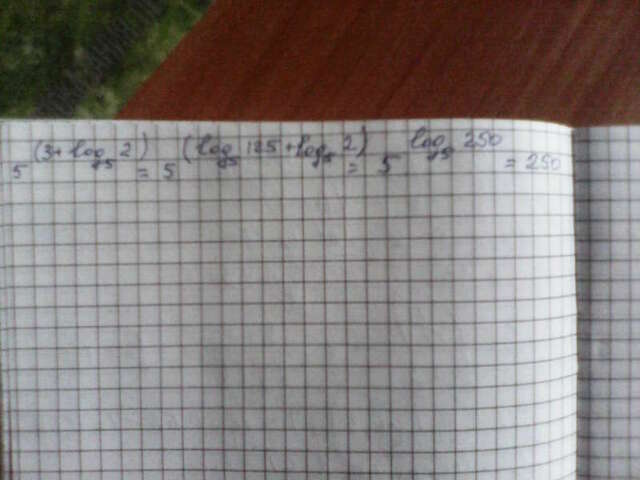 5^(3+log₅2) = 5^(log₅125+log₅2) = 5^log₅250 = 250